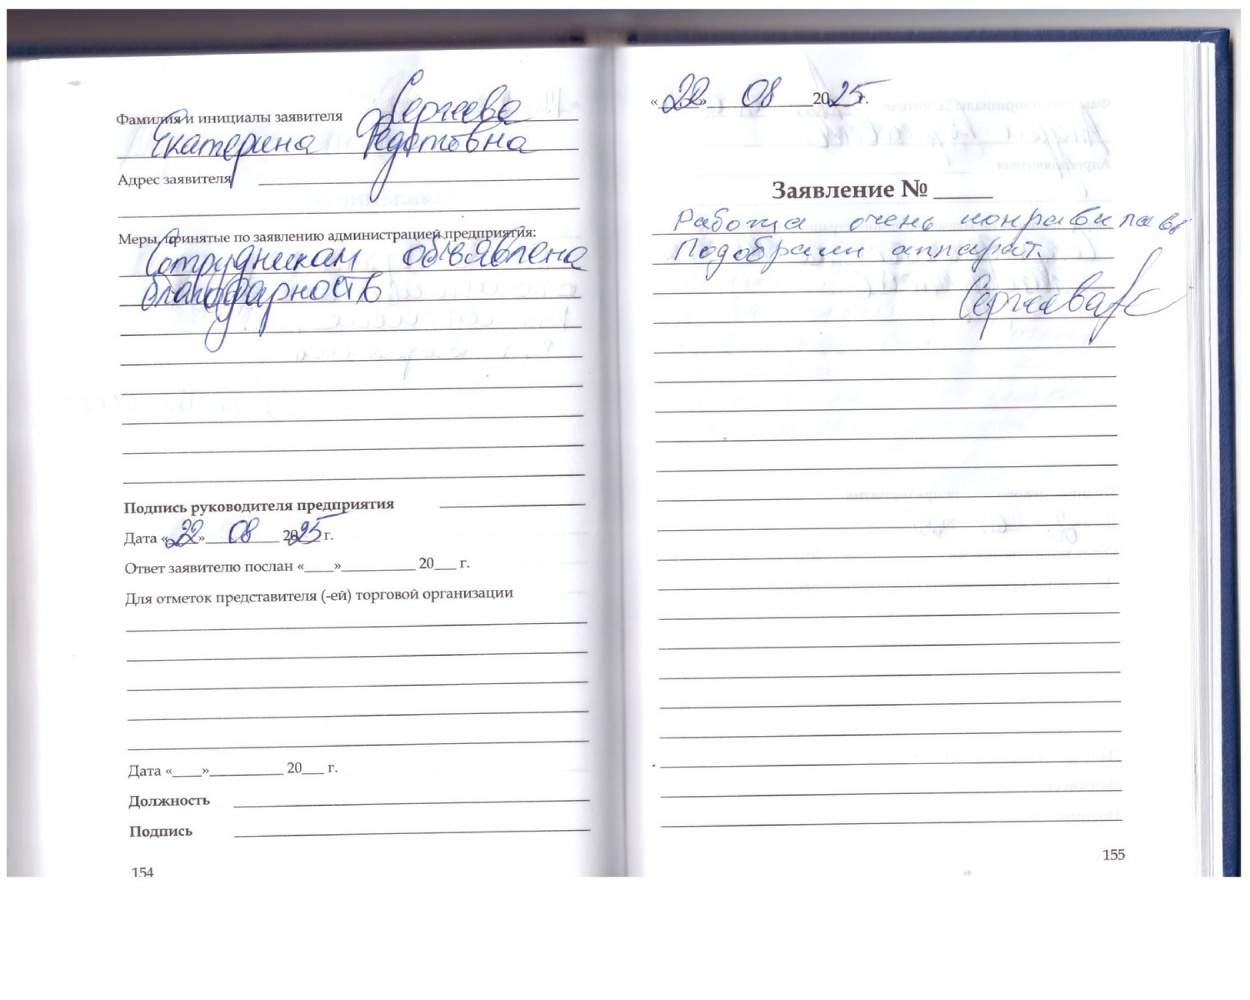 Фамилия и инициалы заявителя Сергеева
Екатерина Федотовна
Адрес заявителя
Меры, принятые по заявлению администрацией предприятия:
Сотрудникам объявлена
благодарность
Подпись руководителя предприятия
Дата «22» 08 2025 г.
Ответ заявителю послан «____»__________ 20___ г.
Для отметок представителя (-ей) торговой организации
Дата «____»__________ 20___ г.
Должность
Подпись
154
«22» 08 2025 г.
Заявление № _____
Работа очень понравилась
Подобрали аппарат.
Сергеева
155